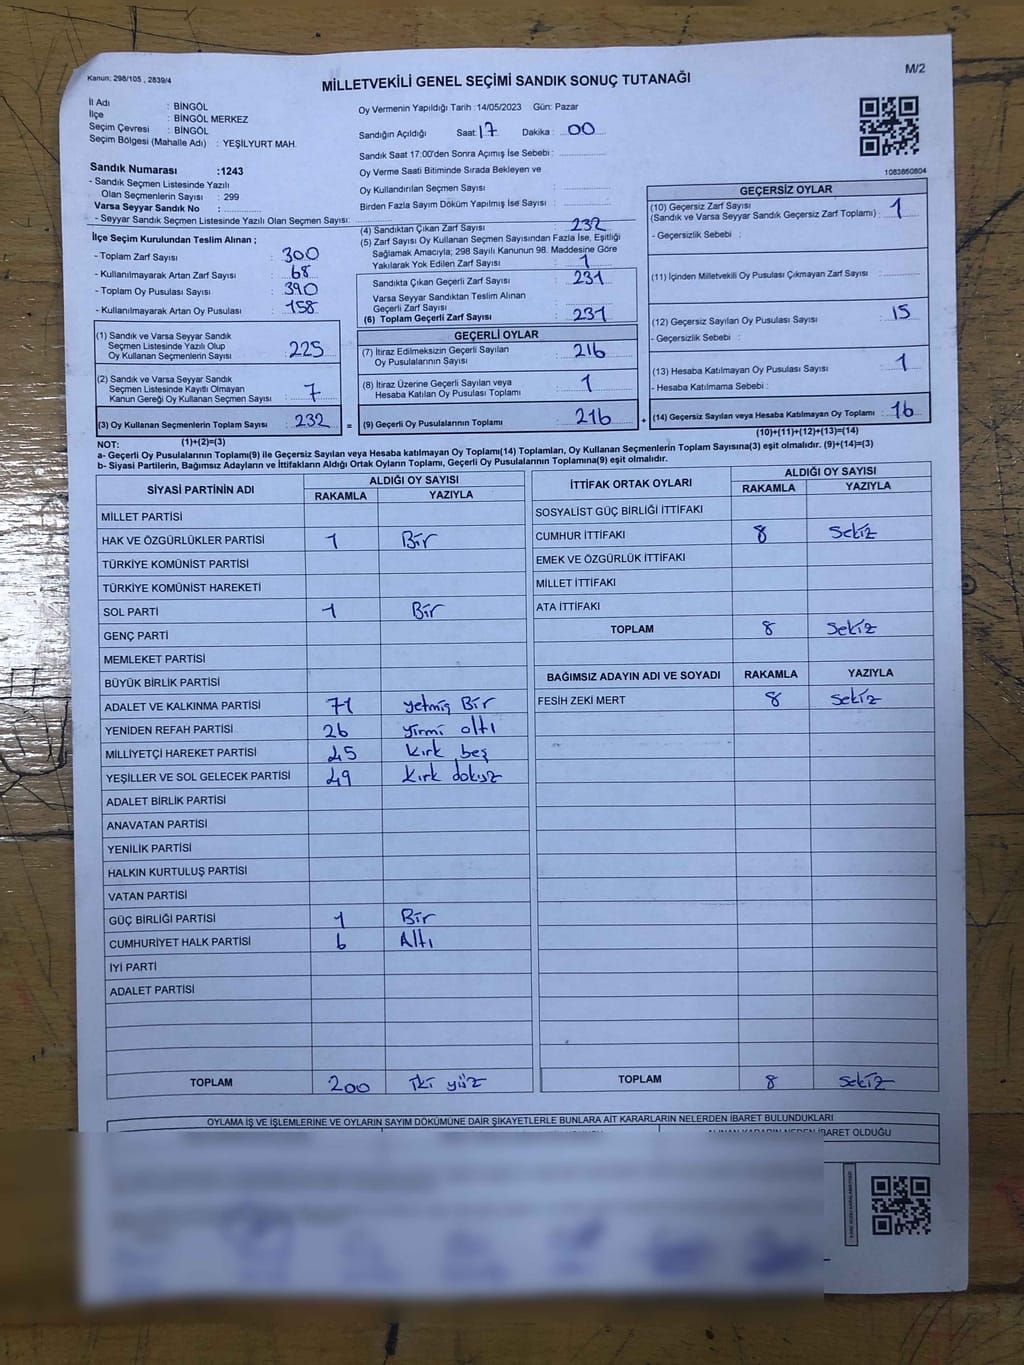 Kanun; 298/105 , 2839/4
MİLLETVEKİLİ GENEL SEÇİMİ SANDIK SONUÇ TUTANAĞI
M/2
İl Adı : BİNGÖL
İlçe : BİNGÖL MERKEZ
Seçim Çevresi : BİNGÖL
Seçim Bölgesi (Mahalle Adı) : YEŞİLYURT MAH.
Sandık Numarası :1243
- Sandık Seçmen Listesinde Yazılı
Olan Seçmenlerin Sayısı : 299
Varsa Seyyar Sandık No :
- Seyyar Sandık Seçmen Listesinde Yazılı Olan Seçmen Sayısı:
Oy Vermenin Yapıldığı Tarih : 14/05/2023 Gün: Pazar
Sandığın Açıldığı Saat: 17 Dakika : 00
Sandık Saat 17:00'den Sonra Açımış İse Sebebi :
Oy Verme Saati Bitiminde Sırada Bekleyen ve
Oy Kullandırılan Seçmen Sayısı :
Birden Fazla Sayım Döküm Yapılmış İse Sayısı :
1083860804
İlçe Seçim Kurulundan Teslim Alınan ;
- Toplam Zarf Sayısı : 300
- Kullanılmayarak Artan Zarf Sayısı : 68
- Toplam Oy Pusulası Sayısı : 390
- Kullanılmayarak Artan Oy Pusulası : 158
(1) Sandık ve Varsa Seyyar Sandık
Seçmen Listesinde Yazılı Olup
Oy Kullanan Seçmenlerin Sayısı : 225
(2) Sandık ve Varsa Seyyar Sandık
Seçmen Listesinde Kayıtlı Olmayan
Kanun Gereği Oy Kullanan Seçmen Sayısı : 7
(3) Oy Kullanan Seçmenlerin Toplam Sayısı : 232
(4) Sandıktan Çıkan Zarf Sayısı : 232
(5) Zarf Sayısı Oy Kullanan Seçmen Sayısından Fazla İse, Eşitliği
Sağlamak Amacıyla; 298 Sayılı Kanunun 98. Maddesine Göre
Yakılarak Yok Edilen Zarf Sayısı : 1
Sandıkta Çıkan Geçerli Zarf Sayısı : 231
Varsa Seyyar Sandıktan Teslim Alınan
Geçerli Zarf Sayısı :
(6) Toplam Geçerli Zarf Sayısı : 231
GEÇERLİ OYLAR
(7) İtiraz Edilmeksizin Geçerli Sayılan
Oy Pusulalarının Sayısı : 216
(8) İtiraz Üzerine Geçerli Sayılan veya
Hesaba Katılan Oy Pusulası Toplamı : 1
= (9) Geçerli Oy Pusulalarının Toplamı : 216 +
GEÇERSİZ OYLAR
(10) Geçersiz Zarf Sayısı
(Sandık ve Varsa Seyyar Sandık Geçersiz Zarf Toplamı) : 1
- Geçersizlik Sebebi :
(11) İçinden Milletvekili Oy Pusulası Çıkmayan Zarf Sayısı :
(12) Geçersiz Sayılan Oy Pusulası Sayısı : 15
- Geçersizlik Sebebi :
(13) Hesaba Katılmayan Oy Pusulası Sayısı : 1
- Hesaba Katılmama Sebebi :
(14) Geçersiz Sayılan veya Hesaba Katılmayan Oy Toplamı : 16
NOT: (1)+(2)=(3) (10)+(11)+(12)+(13)=(14)
a- Geçerli Oy Pusulalarının Toplamı(9) ile Geçersiz Sayılan veya Hesaba katılmayan Oy Toplamı(14) Toplamları, Oy Kullanan Seçmenlerin Toplam Sayısına(3) eşit olmalıdır. (9)+(14)=(3)
b- Siyasi Partilerin, Bağımsız Adayların ve İttifakların Aldığı Ortak Oyların Toplamı, Geçerli Oy Pusulalarının Toplamına(9) eşit olmalıdır.
SİYASİ PARTİNİN ADI ALDIĞI OY SAYISI
RAKAMLA YAZIYLA
MİLLET PARTİSİ
HAK VE ÖZGÜRLÜKLER PARTİSİ 1 Bir
TÜRKİYE KOMÜNİST PARTİSİ
TÜRKİYE KOMÜNİST HAREKETİ
SOL PARTİ 1 Bir
GENÇ PARTİ
MEMLEKET PARTİSİ
BÜYÜK BİRLİK PARTİSİ
ADALET VE KALKINMA PARTİSİ 71 yetmiş Bir
YENİDEN REFAH PARTİSİ 26 yirmi altı
MİLLİYETÇİ HAREKET PARTİSİ 45 kırk beş
YEŞİLLER VE SOL GELECEK PARTİSİ 49 kırk dokuz
ADALET BİRLİK PARTİSİ
ANAVATAN PARTİSİ
YENİLİK PARTİSİ
HALKIN KURTULUŞ PARTİSİ
VATAN PARTİSİ
GÜÇ BİRLİĞİ PARTİSİ 1 Bir
CUMHURİYET HALK PARTİSİ 6 Altı
İYİ PARTİ
ADALET PARTİSİ
TOPLAM 200 iki yüz
İTTİFAK ORTAK OYLARI ALDIĞI OY SAYISI
RAKAMLA YAZIYLA
SOSYALİST GÜÇ BİRLİĞİ İTTİFAKI
CUMHUR İTTİFAKI 8 Sekiz
EMEK VE ÖZGÜRLÜK İTTİFAKI
MİLLET İTTİFAKI
ATA İTTİFAKI
TOPLAM 8 Sekiz
BAĞIMSIZ ADAYIN ADI VE SOYADI RAKAMLA YAZIYLA
FESİH ZEKİ MERT 8 Sekiz
TOPLAM 8 Sekiz
OYLAMA İŞ VE İŞLEMLERİNE VE OYLARIN SAYIM DÖKÜMÜNE DAİR ŞİKAYETLERLE BUNLARA AİT KARARLARIN NELERDEN İBARET BULUNDUKLARI
ALINAN KARARIN NEDEN İBARET OLDUĞU